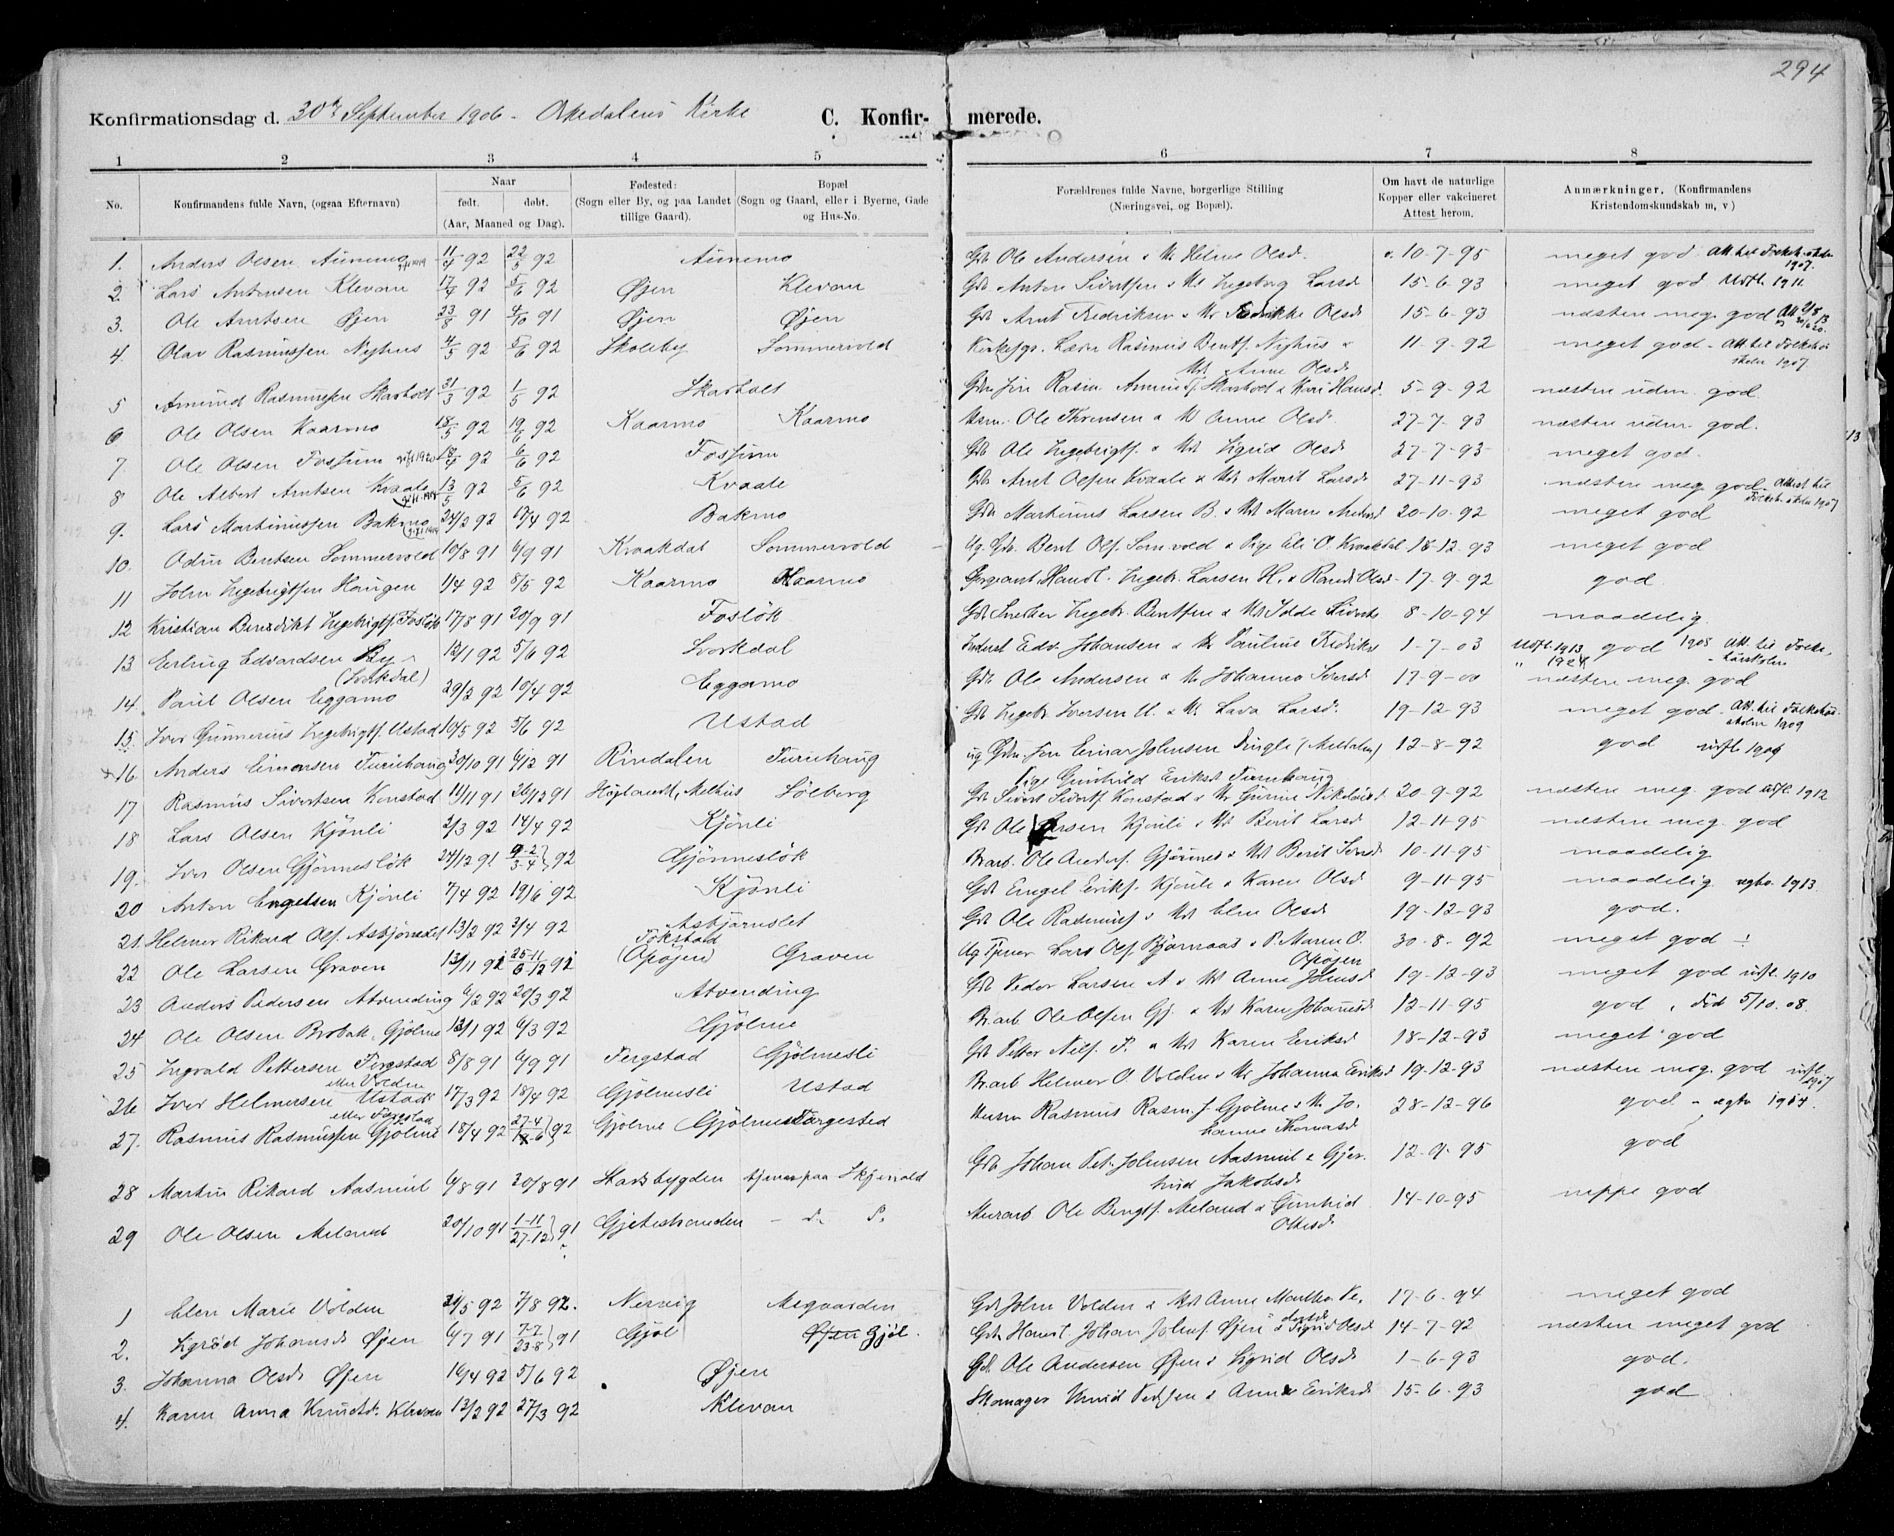 294
Konfirmationsdag d. 30te September 1906 - Orkedalens Kirke C. Konfir- merede.
1 2 3 4 5 6 7 8
No. Konfirmandens fulde Navn, (ogsaa Efternavn) Naar født. døbt. (Aar, Maaned og Dag). Fødested: (Sogn eller By, og paa Landet tillige Gaard). Bopæl (Sogn og Gaard, eller i Byerne, Gade og Hus-No. Forældrenes fulde Navne, borgerlige Stilling (Næringsvei, og Bopæl). Om havt de naturlige Kopper eller vakcineret Attest herom. Anmærkninger. (Konfirmandens Kristendomskundskab m, v)
1. Anders Olsen Aunemo 11/4 92 22/5 92 Aunemo Gdb Ole Andersen & K. Helene Olsd. 10-7-95 meget god Att. til Folkehskolen 1907.
2. Lars Antonsen Klevan 17/4 92 5/6 92 Øjen Klevan Gdb Anton Sivertsen & K. Ingeborg Larsd 15-6-93 meget god Udfl. 1911
3. Ole Arntsen Øjen 23/8 91 4/10 91 Øjen Øjen Gdb Arnt Fredriksen & K. Fredrikke Olsd 15-6-93 næsten meg. god
4. Olav Rasmussen Nyhus 4/5 92 5/6 92 Skoleby Sommervold Kirkesgr. Lærer Rasmus Bentsf. Nyhus & K. Anne Olsd 11-9-92 meget god - Att. til Folkehøiskolen 1907.
5 Amund Rasmussen Skarholt 31/3 92 1/5 92 Skarholt 5-9-92 næsten uden. god
6 Ole Olsen Kaarmo 18/5 92 19/6 92 Kaarmo Kaarmo Husm. Ole Thronsen & K Anne Olsd. 27-7-93 næsten uden. god.
7. Ole Olsen Fossum 6/6 92 Fossum Gdb Ole Ingebrigts. & K. Sigrid Olsd 27-7-93 meget god.
8 Ole Albert Arntsen Kvaale 13/5 92 5/6 92 Kvaale Gdb Arnt Olsen Kvaale & K. Marit Larsd 27-11-93 næsten meg god - Attest til Folkehskolen 1907
9. Lars Martinussen Bakmo 24/2 92 17/4 92 Bakmo Gdb Martinus Larsen B. & K. Maren 20-10-92 meget god
10. Odin Bentsen Sommervold 10/8 91 6/9 91 Kvaakdal Sommervold Ug. Gdb. Bent Olsf. Somvold & Pige Eli O. Kvaakdal 18-12-93 meget god
11 John Ingebrigtsen Haugen 1/4 92 8/5 92 Kaarmo Kaarmo Sergeant, Handl. Ingebr. Larsen H. & Randi Olsd 17-9-92 god.
12 Kristian Benedikt Ingebrigtsf. Fosløk 17/8 91 20/9 91 Fosløk Gdb Snekker Ingebr. Bentsen & K. 8-10-94 maadelig.
13 Erling Edvardsen By (Svorkdal) 13/1 92 5/6 92 Svorkdal Edv. Johansen & K. Pauline Fredriks 1-7-03 Udfl. 1913 " 1924 god 1908 Att. til Folkehøiskolen
14. Paul Olsen Eggamo 29/2 92 10/4 92 Eggamo Gdb Ole Andersen & K. Johanna Iversd 17-9-00 næsten meg. god
15 Iver Gunnerius Ingebrigtsf. Ustad 10/5 92 5/6 92 Ustad Gdb Ingebr. Iversen U. & K. Lava Larsd. 19-12-93 meget god - Att. til Folkehøiskolen 1909
16. Anders Einarsen Furuhaug 30/10 91 6/12 91 Rindalen Furuhaug ug Gdb. Søn Einar Johnsen Dingli (Meldalen) Pige Gunhild Eriksd Furuhaug 12-8-92 god udfl. 1909
17 Rasmus Sivertsen Konstad 11/11 91 26/12 91 Høilandet, Melhus Sølberg Gdb Sivert Sivertsf. Konstad & K. Gurine Nikolaisd 20-9-92 næsten meg god udfl. 1912
18 Lars Olsen Kjønli 2/3 92 14/4 92 Kjønli Gdb Ole Larsen Kjønli & K. Berit Larsd 12-11-95 næsten meg. god
19. Iver Olsen Gjønnesløk 24/12 91 9-2/3-4} 92 Gjønnesløk Br.arb. Ole Andersf. Gjønnes & K. Berit Iversd 10-11-95 maadelig
20 Anton Engelsen Kjönli 7/4 92 19/6 92 Kjönli Gdb Engel Eriksf. Kjønli & Karen Olsd 9-11-95 maadelig 1913.
21. Helmer Rikard Olsf. Asbjørnslet 13/2 92 3/4 92 Asbjørnslet Gdb Ole Rasmusf & K. Elen Olsd 19-12-93 god.
22 Ole Larsen Graven 13/11 91 25-11/6-12 91 Fokstad (Opøjen) Graven Ug Tjener Lars Olsf Bjørnaas & P. Maren O. Opøjen 30-8-92 meget god -
23 Anders Pedersen Atvending 6/2 92 20/3 92 Atvending Gdb Peder Larsen A & K. Anne Johnsd 19-12-93 meget god udfl. 1910
24 Ole Olsen Brobak, Gjølme 13/1 92 6/3 92 Gjölme Br.arb. Ole Olsen Gj. & K. Karen Johansd 12-11-95 god, død 5/10.08.
25 Ingvald Pettersen Fergstad 8/8 91 6/9 91 Fergstad Gjølmesli Gdb Petter Nilsf. F. & K. Karen Eriksd 18-12-93 meget god
26 Iver Helmersen Ustad eller Volden 17/3 92 18/4 92 Gjølmesli Ustad Br.arb Helmer O. Volden & K. Johanna Eriksd 19-12-93 næsten meg. god udfl. 1907
27. Rasmus Rasmussen Gjølme eller Fergstad 18/4 92 27-4/19-6} 92 Gjølme Gjølmes Færgested Husm Rasmus Rasm.f Gjølme & K. Johanne Thomasd 28-12-96 god - 1914.
28 Martin Rikard Aasmul 6/8 91 30/8 91 Stadsbygden tjener paa Skjenald Gdb Johan Pet. Johnsen Aasmul & Gjertrud Jakobsd 12-9-95 god
29 Ole Olsen Meland 20/10 91 1-11/27-12} 91 Gjetestranden - d. S. Murarb Ole Bengtsf. Meland & Gunhild Ottesd 14-10-95 neppe god
1 Elen Marie Volden 21/5 92 7/8 92. Nervig Mogaarden Gdb John Volden & K. Anne Martha Pedersd 17-6-94 meget god
2. Sigrid Johansd Øjen 6/7 91 7-7/23-8} 91 Gjøl Øjen Gjøl. Gdb Handl. Johan Johnsf. Øjen & Sigrid Olsd 14-7-92 næsten meget god
3. Johanna Olsd Øjen 16/4 92 5/6 92 Øjen Gdb Ole Andersen Øjen & Sigrid Olsd 1-6-93 god.
4. Karen Anna Knudsd. Klevan 12/2 92 27/3 92 Klevan Skomager Knud Pedersen & Anne Eriksd 15-6-93 god